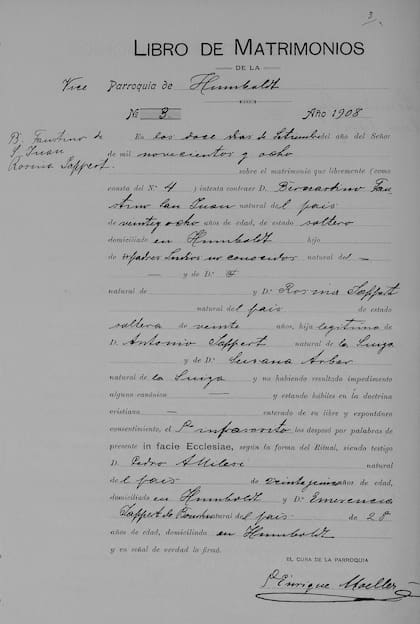 3
LIBRO DE MATRIMONIOS
DE LA
Vice Parroquia de Humboldt
Nº 3 Año 1908
B. Faustino de
S. Juan
Rosina Sappert.
En los doce dias de Setiembre del año del Señor
de mil novecientos y ocho
sobre el matrimonio que libremente (como
consta del N.º 4) intenta contraer D. Bernardino Fau-
stino San Juan natural del pais
de veintiy ocho años de edad, de estado soltero
domiciliado en Humboldt hijo
de padres no conocidos natural de
y de D.ª
natural de y D.ª Rosina Sappert
natural del pais de estado
soltera de veinte años, hija legitima de
D. Antonio Sappert natural de la Suiza
y de D.ª Susana Arber
natural de la Suiza y no habiendo resultado impedimento
alguno canónico — y estando hábiles en la doctrina
cristiana — enterado de su libre y expontáneo
consentimiento, el P. infrascrito los desposó por palabras de
presente in facie Ecclesiae, según la forma del Ritual, siendo testigo
D. Pedro natural
del pais de años de edad,
domiciliado en Humboldt y D.ª Emerencia
Sappert de natural del pais de 28
años de edad, domiciliado en Humboldt
y en señal de verdad lo firmó.
EL CURA DE LA PARROQUIA
P. Enrique Moeller